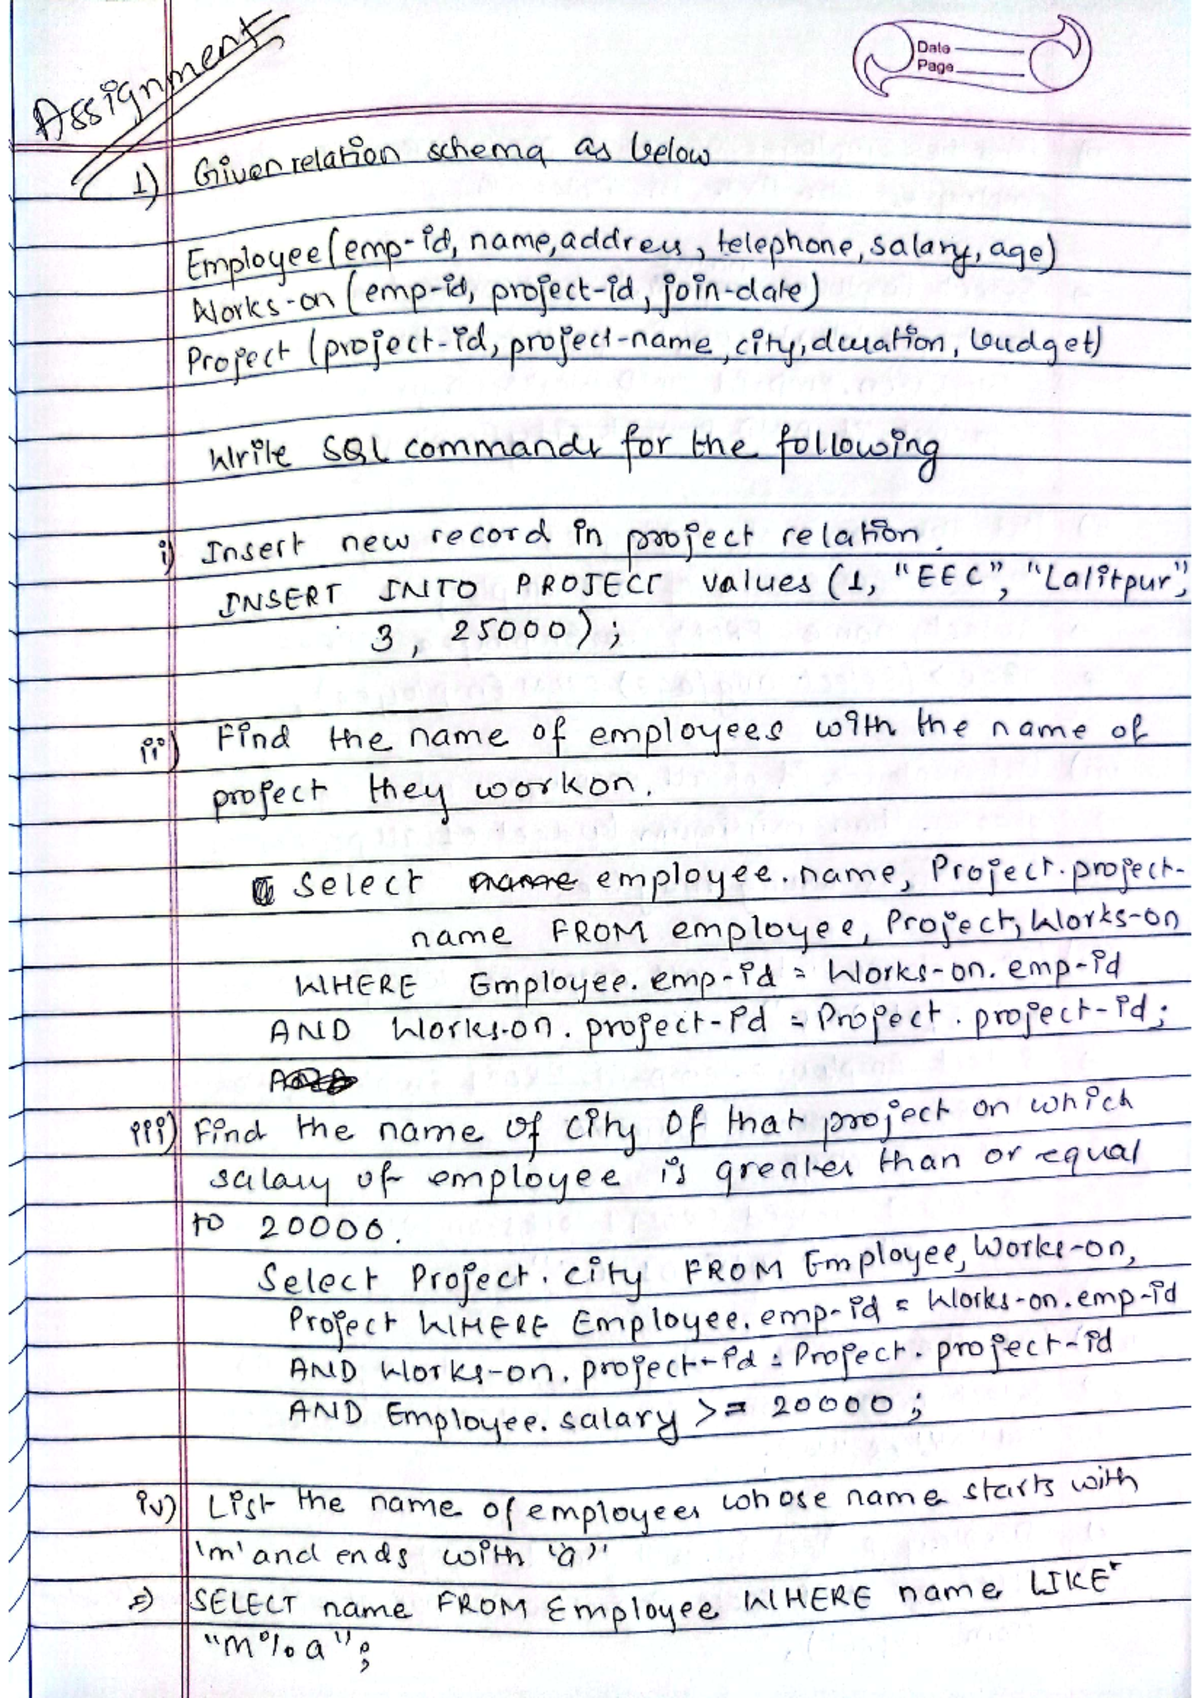 Assignment
Date
Page
1) Given relation schema as below
Employee (emp-id, name, address, telephone, salary, age)
Works-on (emp-id, project-id, join-date)
Project (project-id, project-name, city, duration, budget)
Write SQL commands for the following
i) Insert new record in project relation.
INSERT INTO PROJECT values (1, "EEC", "Lalitpur",
3, 25000);
ii) Find the name of employees with the name of
project they workon.
Select name employee.name, Project.project-
name FROM employee, Project, Works-on
WHERE Employee.emp-id = Works-on.emp-id
AND Works-on.project-id = Project.project-id;
iii) Find the name of city of that project on which
salary of employee is greater than or equal
to 20000.
Select Project.city FROM Employee, Works-on,
Project WHERE Employee.emp-id = Works-on.emp-id
AND Works-on.project-id = Project.project-id
AND Employee.salary >= 20000;
iv) List the name of employees whose name starts with
'm' and ends with 'a'
SELECT name FROM Employee WHERE name LIKE
"m%a";